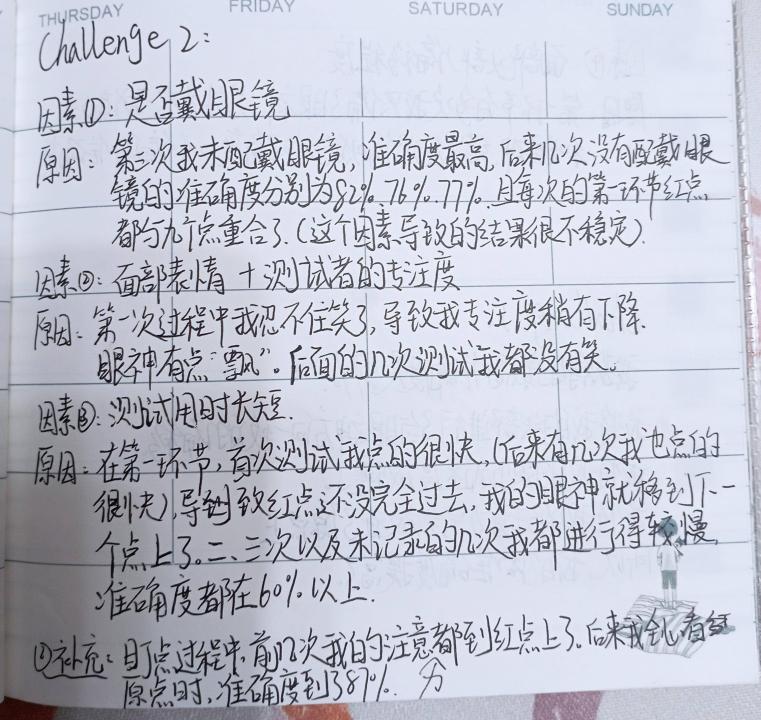 THURSDAY FRIDAY SATURDAY SUNDAY
Challenge 2:
因素①: 是否戴眼镜
原因: 第三次我未配戴眼镜, 准确度最高, 后来几次没有配戴眼
镜的准确度分别为82%、76%、77%, 且每次的第一环节红点
都与九个点重合了.(这个因素导致的结果很不稳定).
因素②: 面部表情 + 测试者的专注度
原因: 第一次过程中我忍不住笑了, 导致我专注度稍有下降.
眼神有点“飘”。后面的几次测试我都没有笑。
因素③: 测试用时长短.
原因: 在第一环节, 首次测试我点的很快, (后来有几次我也点的
很快), 导致红点还没完全过去, 我的眼神就移到下一
个点上了。二、三次以及未记录的几次我都进行得较慢,
准确度都在60%以上.
①补充: 盯点过程中, 前几次我的注意都到红点上了。后来我全心看
原点时, 准确度到了87%.